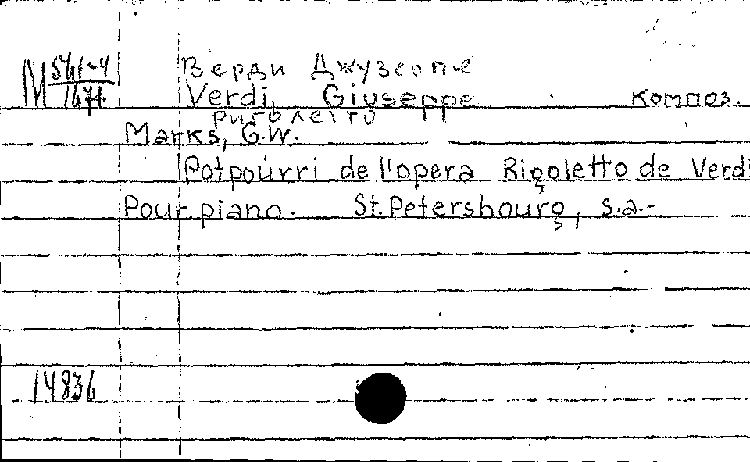 М 541-4 Верди Джузеппе
Verdi, Giuseppe композ.
Риголетто
Marks, G.W.
Potpourri de l'opera Rigoletto de Verdi
Pour piano. St. Petersbourg, s.a.-
14836